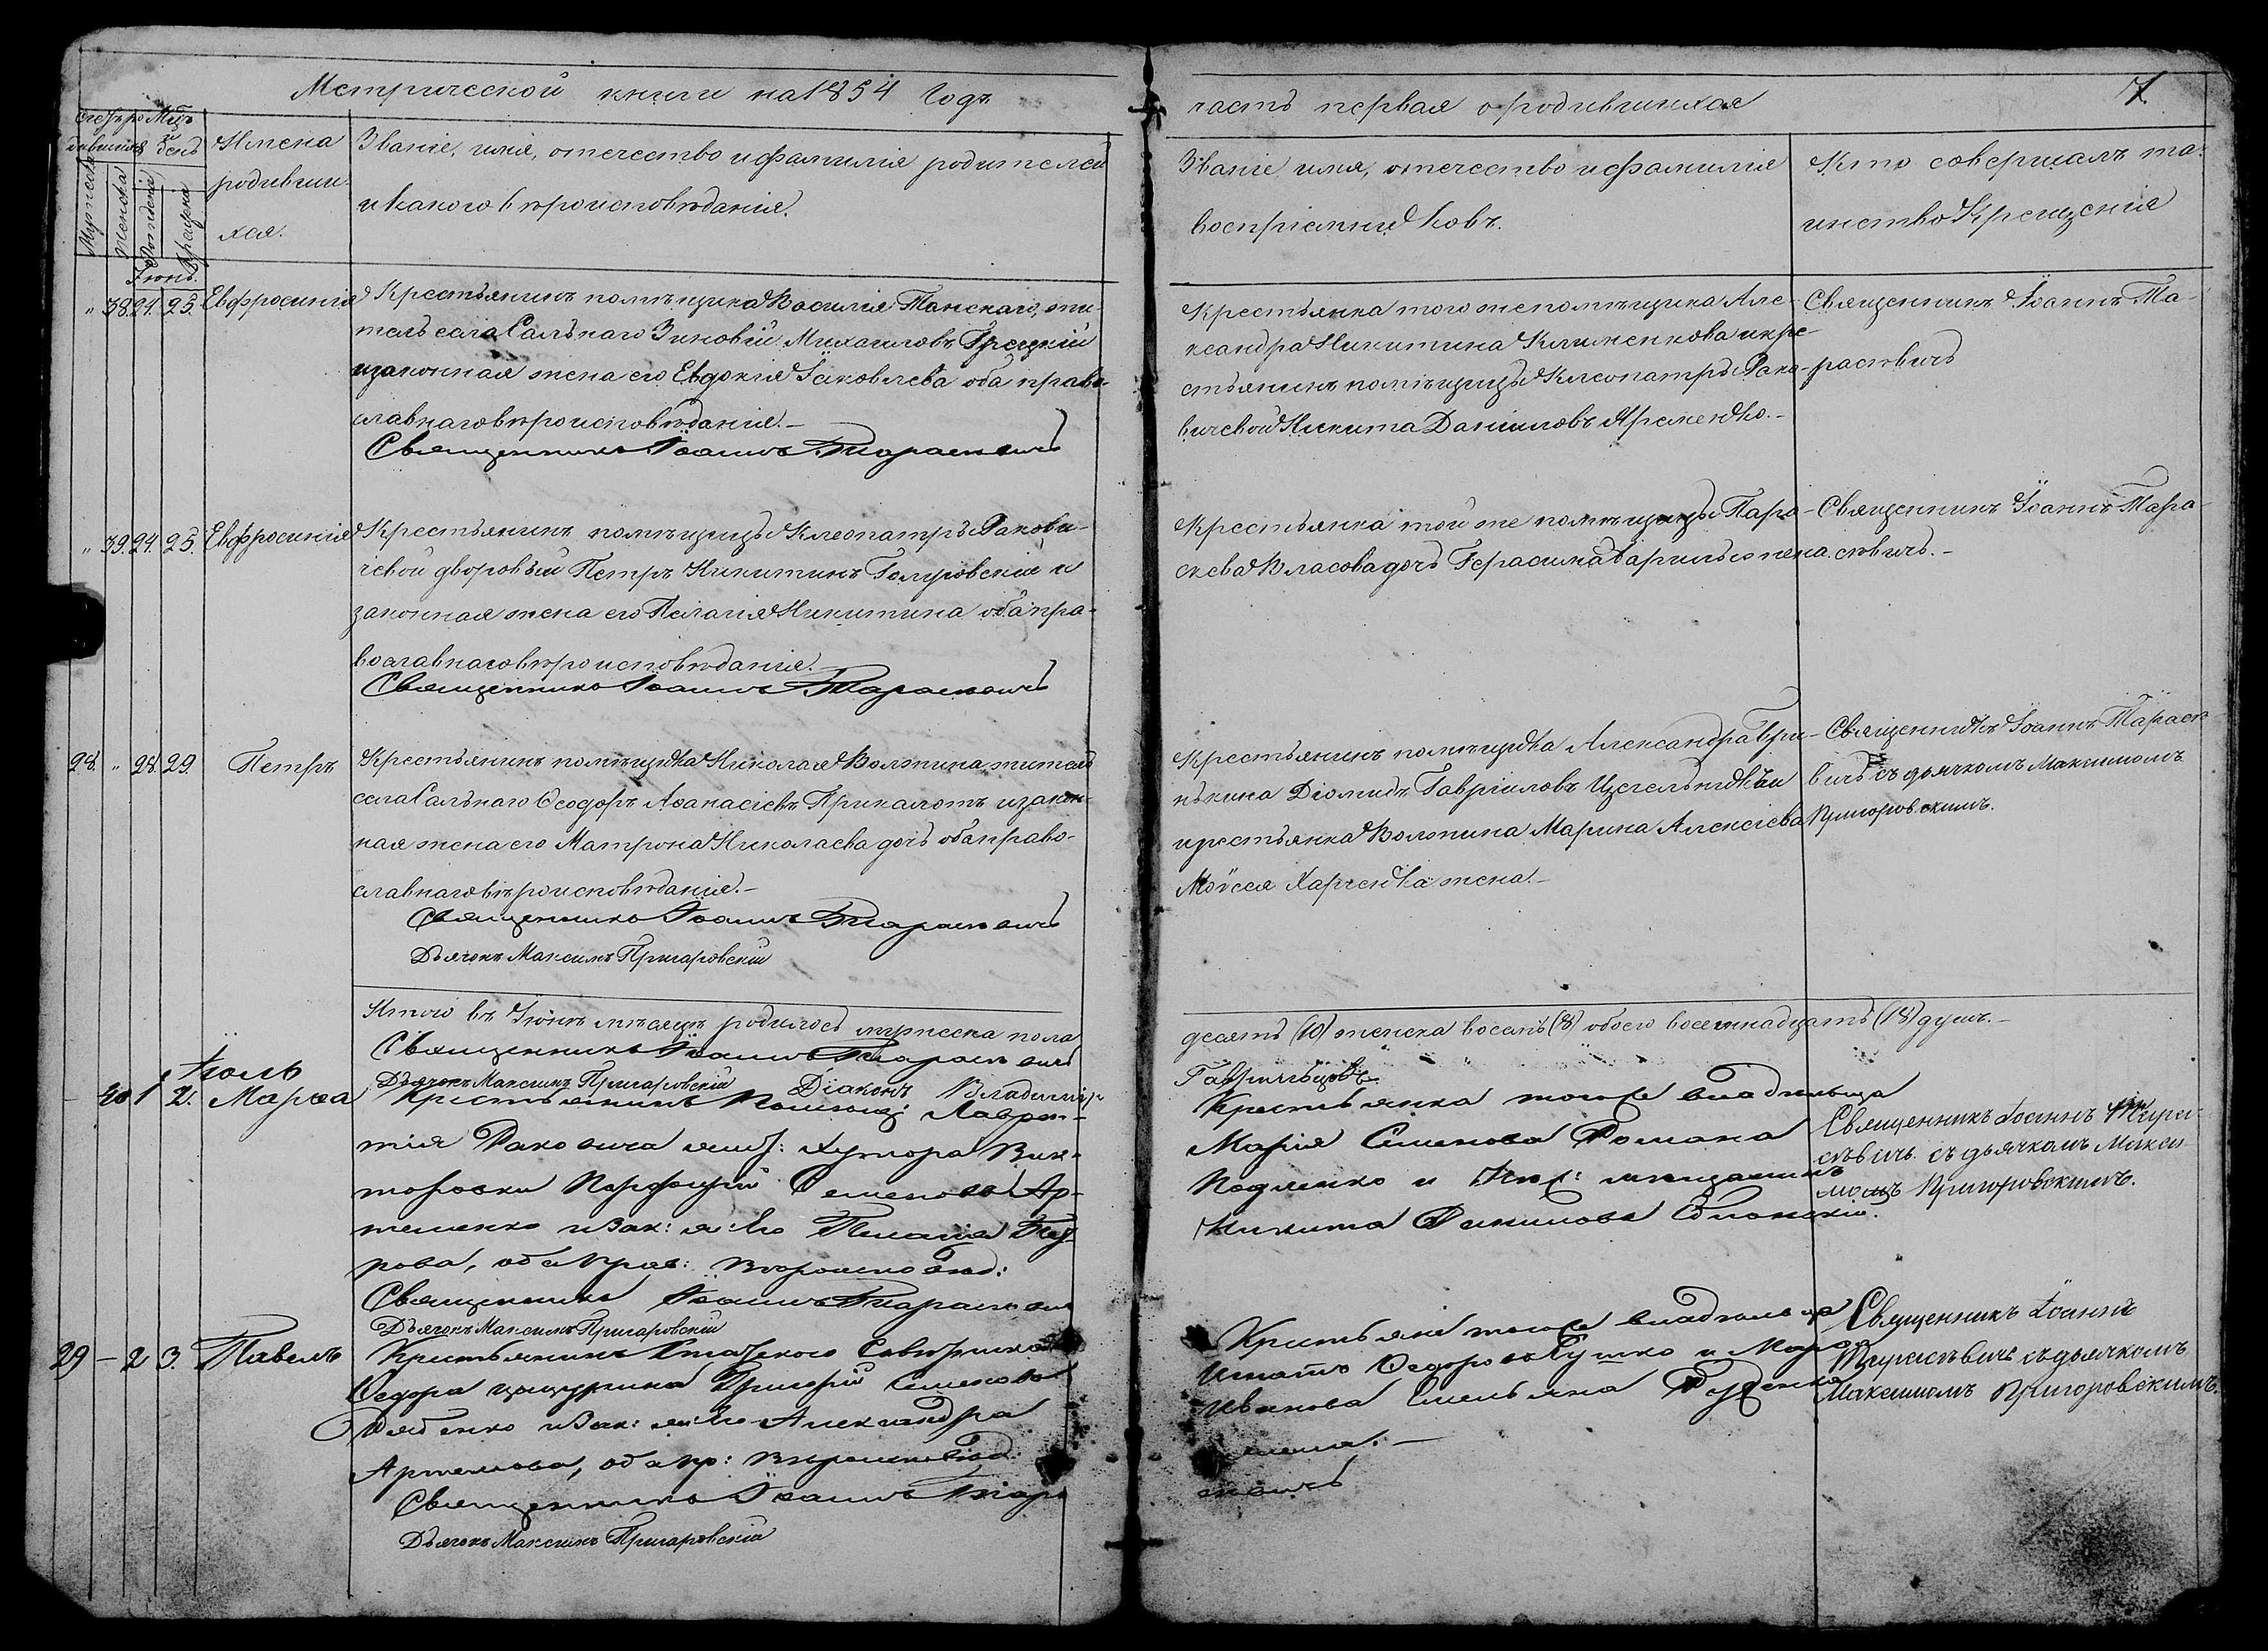 Метрической книги на 1854 Годъ
часть первая о родившихся
7.
Счетъ ро
дившихся
Мцъ
и
день
Мужеска
Женска
Рожденія
Крещенія
Имена
родивши
хся.
Званіе, имя, отчество и фамилія родителей
и какого вѣроисповѣданія.
Званіе имя, отчество и фамилія
воспріемниковъ.
Кто совершалъ та-
инство Крещенія
Іюнь.
" 38. 24. 25. Евфросинія
Крестьянинъ помѣщика Василія Танскаго, жи-
тель села Сальнаго Зиновій Михаиловъ Грецкій
и законная жена его Евдокія Іаковлева оба право-
славнаго вѣроисповѣданія.—
Священникъ Іоаннъ Тарасевичъ
Крестьянка того же помѣщика Але-
ксандра Никитина Клименкова и кре-
стьянинъ помѣщицы Клеопатры Рако-
вичевой Никита Даніиловъ Яременко.—
Священникъ Іоаннъ Та-
расѣвичъ
" 39. 24. 25. Евфросинія
Крестьянинъ помѣщицы Клеопатры Ракови-
чевой дворовый Петръ Никитинъ Голуровскій и
законная жена его Пелагія Никитина оба пра-
вославнаго вѣроисповѣданія.
Священникъ Іоаннъ Тарасевичъ
Крестьянка той же помѣщицы Пара-
скева Власова дочь Герасима жена
Священникъ Іоаннъ Тара-
сѣвичъ.—
28. " 28. 29. Петръ
Крестьянинъ помѣщика Николая Волжина житель
села Сальнаго Ѳеодоръ Аѳанасіевъ Прихалотъ и закон-
ная жена его Матрона Николаева дочь оба право-
славнаго вѣроисповѣданія.—
Священникъ Іоаннъ Тарасевичъ
Дьячокъ Максимъ Пригаровскій
Крестьянинъ помѣщика Александра Гри-
нькина Діомидъ Гавріиловъ Цегельникъ и
крестьянка Волжина Марина Алексіева
Мойсея Харченка жена.—
Священникъ Іоаннъ Тарасѣ-
вичъ съ дьячкомъ Максимомъ
Пригоровскимъ.
Итого въ Іюнѣ мѣсяцѣ родилось мужеска пола
десять (10) женска восемь (8) обоего восемнадцать (18) душъ.—
Священникъ Іоаннъ Тарасевичъ
Дьячокъ Максимъ Пригаровскій
Діаконъ Владиміръ
Гавриловъ
Іюль
— 40 1 2. Марѳа
Крестьянинъ Помѣщ: Лаврен-
тія Раковича жит: хутора Вик-
торовки Парфирій Семеновъ Ар-
теменко и Зак: ж: Его Пелагія Пет-
рова, оба Прав: Вѣроисповѣд:
Священникъ Іоаннъ Тарасевичъ
Дьячокъ Максимъ Пригаровскій
Крестьянка тогоже владельца
Марія Семенова Романа
Подленко и мещанинъ
Никита Данилова
Священникъ Іоаннъ Тара-
сѣвичъ съ дьячкомъ Макси-
момъ Пригоровскимъ.
29 — 2 3. Павелъ
Крестьянинъ
Ѳедора Григорій Семеновъ
Рябенко и Зак: ж: Его Александра
Артемова, оба пр: Вѣроисповѣд:
Священникъ Іоаннъ Тара
севичъ
Дьячокъ Максимъ Пригаровскій
Крестьяне тогоже владельца
Игнатъ Ѳедоровъ и Марѳа
Иванова Емельяна Руденка
жена.—
Священникъ Іоаннъ
Тарасѣвичъ съ дьячкомъ
Максимомъ Пригоровскимъ.